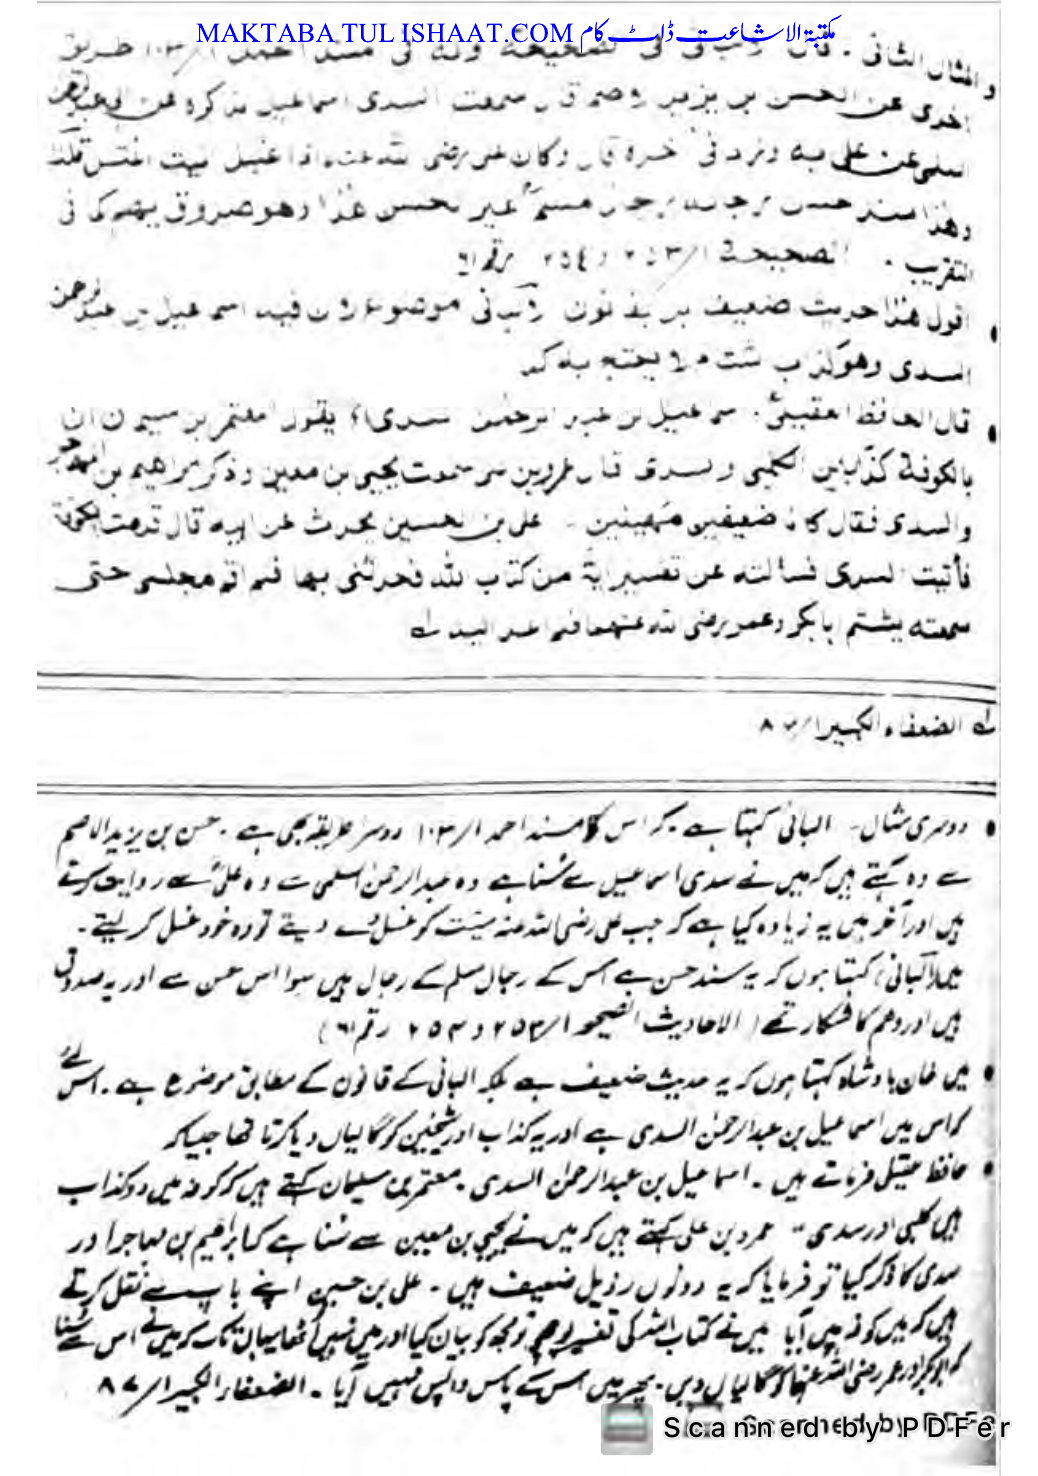 MAKTABA TUL ISHAAT.COM مکتبۃ الاشاعت ڈاٹ کام
والمثال الثانی . قال الالبانی فی الصحیحة وله فی مسند احمد ۱/۱۰۳ طریق
اخری عن الحسن بن یزید الاصم قال سمعت السدی اسماعیل یذکره عن ابی عبدالرحمن
السلمی عن علی به وزاد فی آخره قال وکان علی رضی الله عنه اذا غسل المیت اغتسل قلت
وهذا سند حسن رجاله رجال مسلم غیر الحسن هذا وهو صدوق یهم کما فی
التقریب . الصحیحة ۱/۲۵۳ و ۲۵٤ رقم ۱٦۱
اقول هذا حدیث ضعیف بل بقانون الالبانی موضوع لان فیه اسماعیل بن عبدالرحمن
السدی وهو کذاب شتام لا یحتج به کما
قال الحافظ العقیلی . اسماعیل بن عبد الرحمن السدی یقول معتمر بن سلیمان ان
بالکوفة کذابین الکلبی والسدی قال عمرو بن علی سمعت یحیی بن معین وذکر ابراهیم بن المهاجر
والسدی فقال کانا ضعیفین مهینین . علی بن الحسین یحدث عن ابیه قال قدمت الکوفة
فأتیت السدی فسألته عن تفسیر اٰیة من کتاب الله فحدثنی بها فلم اتم مجلسی حتی
سمعته یشتم ابابکر وعمر رضی الله عنهما فلم اعد الیه لہ
لہ الضعفاء الکبیر ۱/۸۷
دوسری مثال۔ البانی کہتا ہے کہ اس کا مسند احمد ۱/۱۰۳ دوسرا طریقہ بھی ہے . حسن بن یزید الاصم
سے وہ کہتے ہیں کہ میں نے سدی اسماعیل سے سُنا ہے وہ عبدالرحمٰن السلمی سے وہ علیؓ سے روایت کرتے
ہیں اور آخر میں یہ زیادہ کیا ہے کہ جب علی رضی اللہ عنہ میت کو غسل دیتے تو وہ خود غسل کر لیتے ۔
میں (البانی) کہتا ہوں کہ یہ سند حسن ہے اس کے رجال مسلم کے رجال ہیں سوا اس حسن سے اور یہ صدوق
ہیں اور وھم کا شکار تھے ( الاحادیث الصحیحہ ۱/۲۵۳ و ۲۵۴ رقم ۱۶۱ )
میں خان بادشاہ کہتا ہوں کہ یہ حدیث ضعیف ہے بلکہ البانی کے قانون کے مطابق موضوع ہے . اس لئے
کہ اس میں اسماعیل بن عبدالرحمٰن السدی ہے اور یہ کذاب اور شیخین کو گالیاں دیا کرتا تھا جیسا کہ
حافظ عقیلی فرماتے ہیں ۔ اسماعیل بن عبدالرحمان السدی . معتمر بن سلیمان کہتے ہیں کہ کوفہ میں دو کذاب
ہیں کلبی اور سدی ۔ عمرو بن علی کہتے ہیں کہ میں نے یحیی بن معین سے سُنا ہے کہ ابراھیم بن مھاجر اور
سدی کا ذکر کیا تو فرمایا کہ یہ دونوں رذیل ضعیف ہیں ۔ علی بن حسین اپنے باپ سے نقل کرتے
ہیں کہ میں کوفہ میں آیا میں نے کتاب اللہ کی تفسیر پوچھی تو مجھ کو بیان کیا اور میں نہیں اُٹھا یہاں تک کہ میں نے اس سے سُنا
کہ ابوبکر اور عمر رضی اللہ عنہما کو گالیاں دیں . پھر میں اس کے پاس واپس نہیں آیا ۔ الضعفاء الکبیر ۱/۸۷
Scanned by PDFer